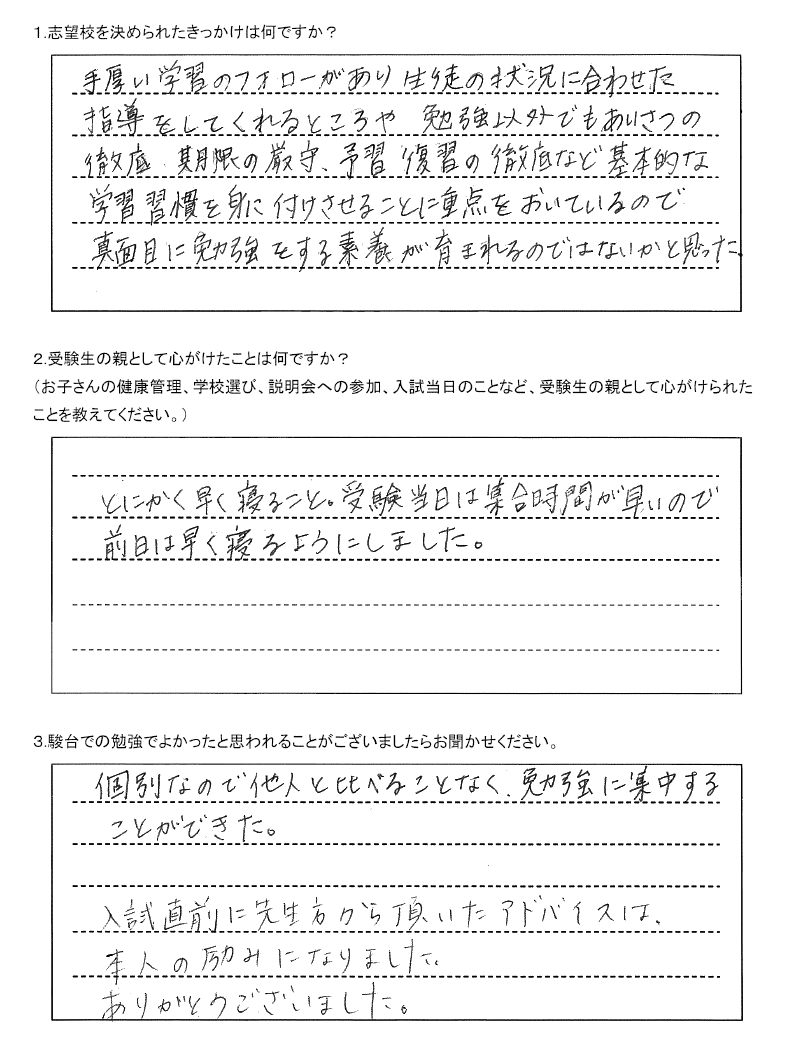 1.志望校を決められたきっかけは何ですか？
手厚い学習のフォローがあり生徒の状況に合わせた
指導をしてくれるところや 勉強以外でもあいさつの
徹底、期限の厳守、予習 復習の徹底など基本的な
学習習慣を身に付けさせることに重点をおいているので
真面目に勉強をする素養が育まれるのではないかと思った。
2.受験生の親として心がけたことは何ですか？
（お子さんの健康管理、学校選び、説明会への参加、入試当日のことなど、受験生の親として心がけられた
ことを教えてください。）
とにかく早く寝ること。受験当日は集合時間が早いので
前日は早く寝るようにしました。
3.駿台での勉強でよかったと思われることがございましたらお聞かせください。
個別なので他人と比べることなく、勉強に集中する
ことができた。
入試直前に先生方から頂いたアドバイスは、
本人の励みになりました。
ありがとうございました。